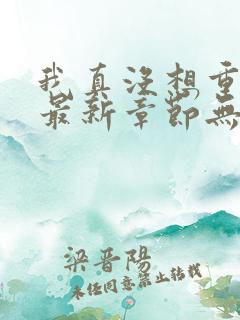 我真没想重
最新章節無
梁晋陽
未任同意禁止转载